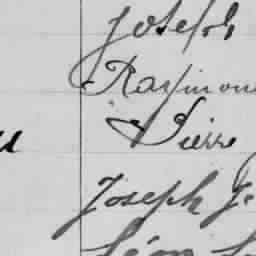 Joseph
Raymon
Pierre
Joseph Je
Léon